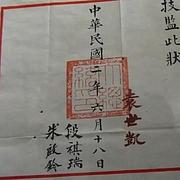 技監此狀
中華民國二年六月十八日
袁世凱
段祺瑞
朱啟鈐